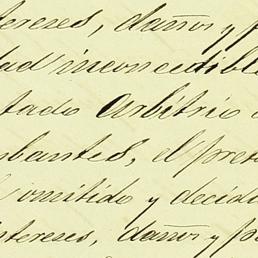 tereses, daños y p
dad inconcedible
tado Arbitrio
bantes, el pret
omitido y decid
ntereses, daños y p